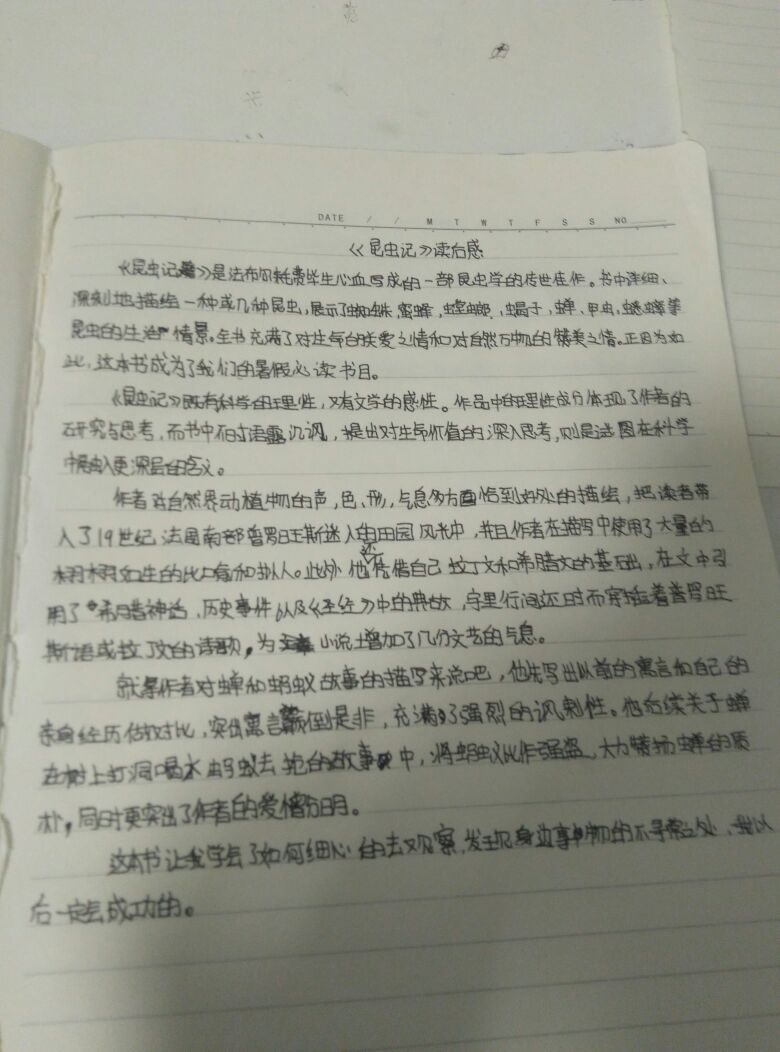 DATE / / M T W T F S S NO
《昆虫记》读后感
《昆虫记》是法布尔耗费毕生心血写成的一部昆虫学的传世佳作。书中详细、
深刻地描绘一种或几种昆虫,展示了蜘蛛,蜜蜂,螳螂,蝎子,蝉、甲虫,蟋蟀等
昆虫的生活情景。全书充满了对生命的关爱之情和对自然万物的赞美之情。正因为如
此,这本书成为了我们的暑假必读书目。
《昆虫记》既有科学的理性,又有文学的感性。作品中的理性成分体现了作者的
研究与思考,而书中不时语露讥讽,提出对生命价值的深入思考,则是试图在科学
中融入更深层的含义。
作者对自然界动植物的声,色,形,气息多方面恰到好处的描绘,把读者带
入了19世纪法国南部普罗旺斯迷人的田园风光中,并且作者在描写中使用了大量的
栩栩如生的比喻和拟人。此外他还凭借自己拉丁文和希腊文的基础,在文中引
用了希腊神话,历史事件以及《圣经》中的典故,字里行间还时而穿插着普罗旺
斯语或拉丁文的诗歌,为小说增加了几分文艺的气息。
就拿作者对蝉和蚂蚁故事的描写来说吧,他先写出以前的寓言和自己的
亲身经历做对比,突出寓言颠倒是非,充满了强烈的讽刺性。他后续关于蝉
在树上打洞喝水蚂蚁去抢的故事中,将蚂蚁比作强盗,大力赞扬蝉的质
朴,同时更突出了作者的爱憎分明。
这本书让我学会了如何细心的去观察,发现身边事物的不寻常之处,我以
后一定会成功的。